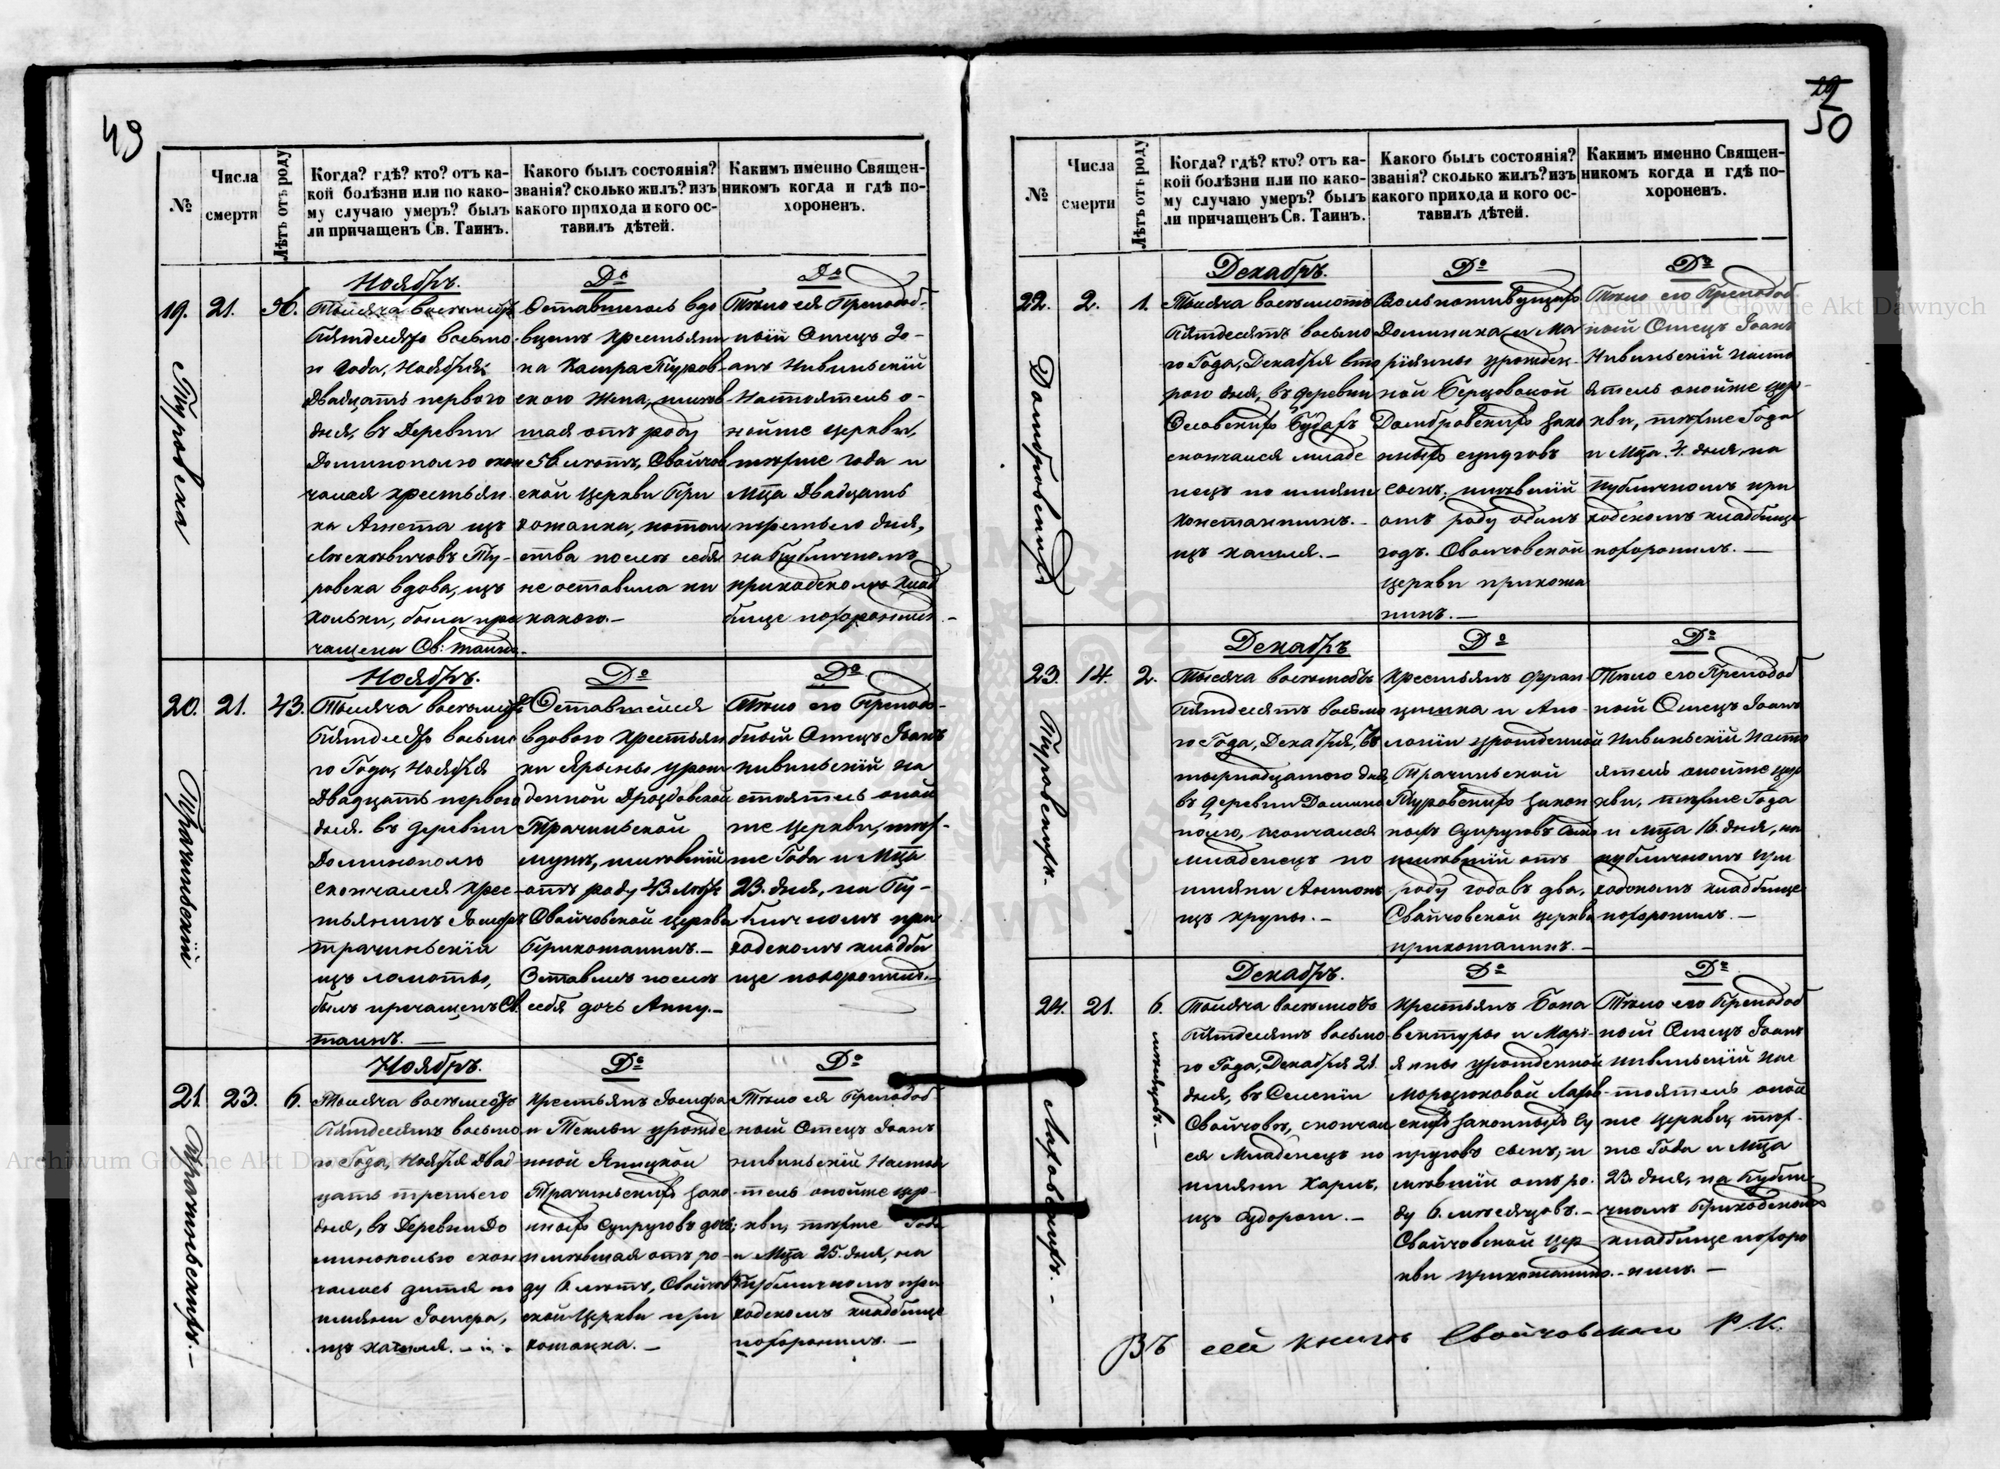 49
№
Числа
смерти
Лѣтъ отъ роду
Когда? гдѣ? кто? отъ ка-
кой болѣзни или по како-
му случаю умеръ? былъ
ли причащенъ Св. Таинъ.
Какого былъ состоянія?
званія? сколько жилъ? изъ
какого прихода и кого ос-
тавилъ дѣтей.
Какимъ именно Священ-
никомъ когда и гдѣ по-
хороненъ.
19.
21.
Туровска
Ноябрь.
Тысяча восемьсотъ
Пятдесятъ восьмо
го Года, Ноября
двадцать перваго
дня, въ Деревни
Доминополю скон
чалася крестьян
ка Агнета изъ
ровска вдова, изъ
кольки, была при
чащена Св: таинъ.
Dº
Оставшаяся вдо
вцемъ Крестьяни
на Туров
ского жена, имѣв
шая отъ роду
56 лѣтъ, Свойчов
ской Церкви При
хожанка, потом
ства послѣ себя
не оставила ни
какого.—
Dº
Тѣло ея Преподоб-
ный Отецъ Іо-
анъ Нивинскій
Настоятель о-
нойже церкви,
тогоже года и
Мца двадцать
третьего дня,
на Публичномъ
приходскомъ клад
бище похоронилъ.—
20.
21.
43.
Трачинскій
Ноябрь.
Тысяча восемьсотъ
Пятдесятъ восьмо
го Года, Ноября
Двадцать перваго
дня. въ деревни
Доминополю
скончался крес-
тьянинъ Іосифъ
трачинскій
изъ ломоты,
былъ причащенъ Св.
таинъ.—
Dº
Оставшейся
вдовою Крестьян
ки Урож
денной Дроздовской
Трачинской
мужъ, имѣвшій
отъ роду 43 лѣтъ
Свойчовской церкви
Прихожанинъ.—
Оставилъ послѣ
себя дочь Анну.—
Dº
Тѣло его Преподо-
бный Отецъ Іоанъ
нивинскій на
стоятель оной
же церкви, тог-
оже Года и Мца
23. дня, на Пу-
бличномъ при
ходскомъ кладби
ще похоронилъ.—
21
23.
6.
Трачинскихъ.—
Ноябрь.
Тысяча восемьсотъ
Пятдесятъ восьмо
го Года, Ноября двад
цать третьего
дня, въ Деревни До
минополю скон
чалось дитя по
имяни Іосифа,
изъ кашля.—
Dº
Крестьянъ Іосифа
и Теклы урожде
нной Яницкой
Трачинскихъ зако
нныхъ Супруговъ дочь,
имѣвшая отъ ро-
ду 6. лѣтъ, Свойчов
ской Церкви при
хожанка.—
Dº
Тѣло ея Преподоб-
ный Отецъ Іоанъ
нивинскій Настоя
тель онойже цер-
кви, тогоже Года
и Мца 25. дня, на
Публичномъ при
ходскомъ кладбище
похоронилъ.—
50
№
Числа
смерти
Лѣтъ отъ роду
Когда? гдѣ? кто? отъ ка-
кой болѣзни или по како-
му случаю умеръ? былъ
ли причащенъ Св. Таинъ.
Какого былъ состоянія?
званія? сколько жилъ? изъ
какого прихода и кого ос-
тавилъ дѣтей.
Какимъ именно Священ-
никомъ когда и гдѣ по-
хороненъ.
22.
2.
1.
Домбровскихъ
Декабрь.
Тысяча восемьсотъ
Пятдесятъ восьмо
го Года, Декабря вто
рого дня, въ деревни
скончался младе
нецъ по имяни
Константинъ.—
изъ кашля.—
Dº
Вольноживущихъ
Доминика и Ма
ріянны урожден-
ной Берцовской
Домбровскихъ зако
нныхъ супруговъ
сынъ, имѣвшій
отъ роду одинъ
годъ. Свойчовской
церкви прихожа
нинъ.—
Dº
Тѣло его Преподоб
ный Отецъ Іоанъ
Нивинскій насто
ятель онойже цер-
кви, тогоже Года
и Мца. 4. дня, на
Публичномъ при
ходскомъ кладбище
похоронилъ.—
23.
14.
2.
Туровскихъ.
Декабрь
Тысяча восемьсотъ
Пятдесятъ восьмо
го Года, Декабря, че
тырнадцатого дня,
въ деревни Домино
полю, скончался
младенецъ по
имяни Антонъ
изъ крупы.—
Dº
Крестьянъ Фран
цишка и Апо
лоніи урожденной
Трачинской
Туровскихъ закон
ныхъ Супруговъ сынъ
имѣвшій отъ
роду годовъ два,
Свойчовской церкви
прихожанинъ.—
Dº
Тѣло его Преподоб
ный Отецъ Іоанъ
Нивинскій насто
ятель онойже цер
кви, тогоже Года
и Мца 16. дня, на
публичномъ при
ходскомъ кладбище
похоронилъ.—
24.
21.
6.
мѣсяцовъ.—
Ляховскихъ.—
Декабрь.
Тысяча восемьсотъ
Пятдесятъ восьмо
го Года, Декабря 21
дня, въ Селеніи
Свойчовѣ, скончал
ся Младенецъ по
имяни Карлъ,
изъ судорги.—
Dº
Крестьянъ Бона
вентуры и Марі-
янны урожденной
Морозюковой Лахов
скихъ законныхъ Су
пруговъ сынъ, и
мѣвшій отъ ро-
ду 6. мѣсяцовъ.—
Свойчовской Цер
кви прихожанинъ.
Dº
Тѣло его Преподоб
ный Отецъ Іоанъ
нивинскій нас
тоятель оной
же Церкви, тог-
оже Года и Мца
23. дня, на Публи
чномъ Приходскомъ
кладбище похоро
нилъ.—
Въ сей книгѣ Свойчовской Р. К.
Archiwum Główne Akt Dawnych
Archiwum Główne Akt Dawnych